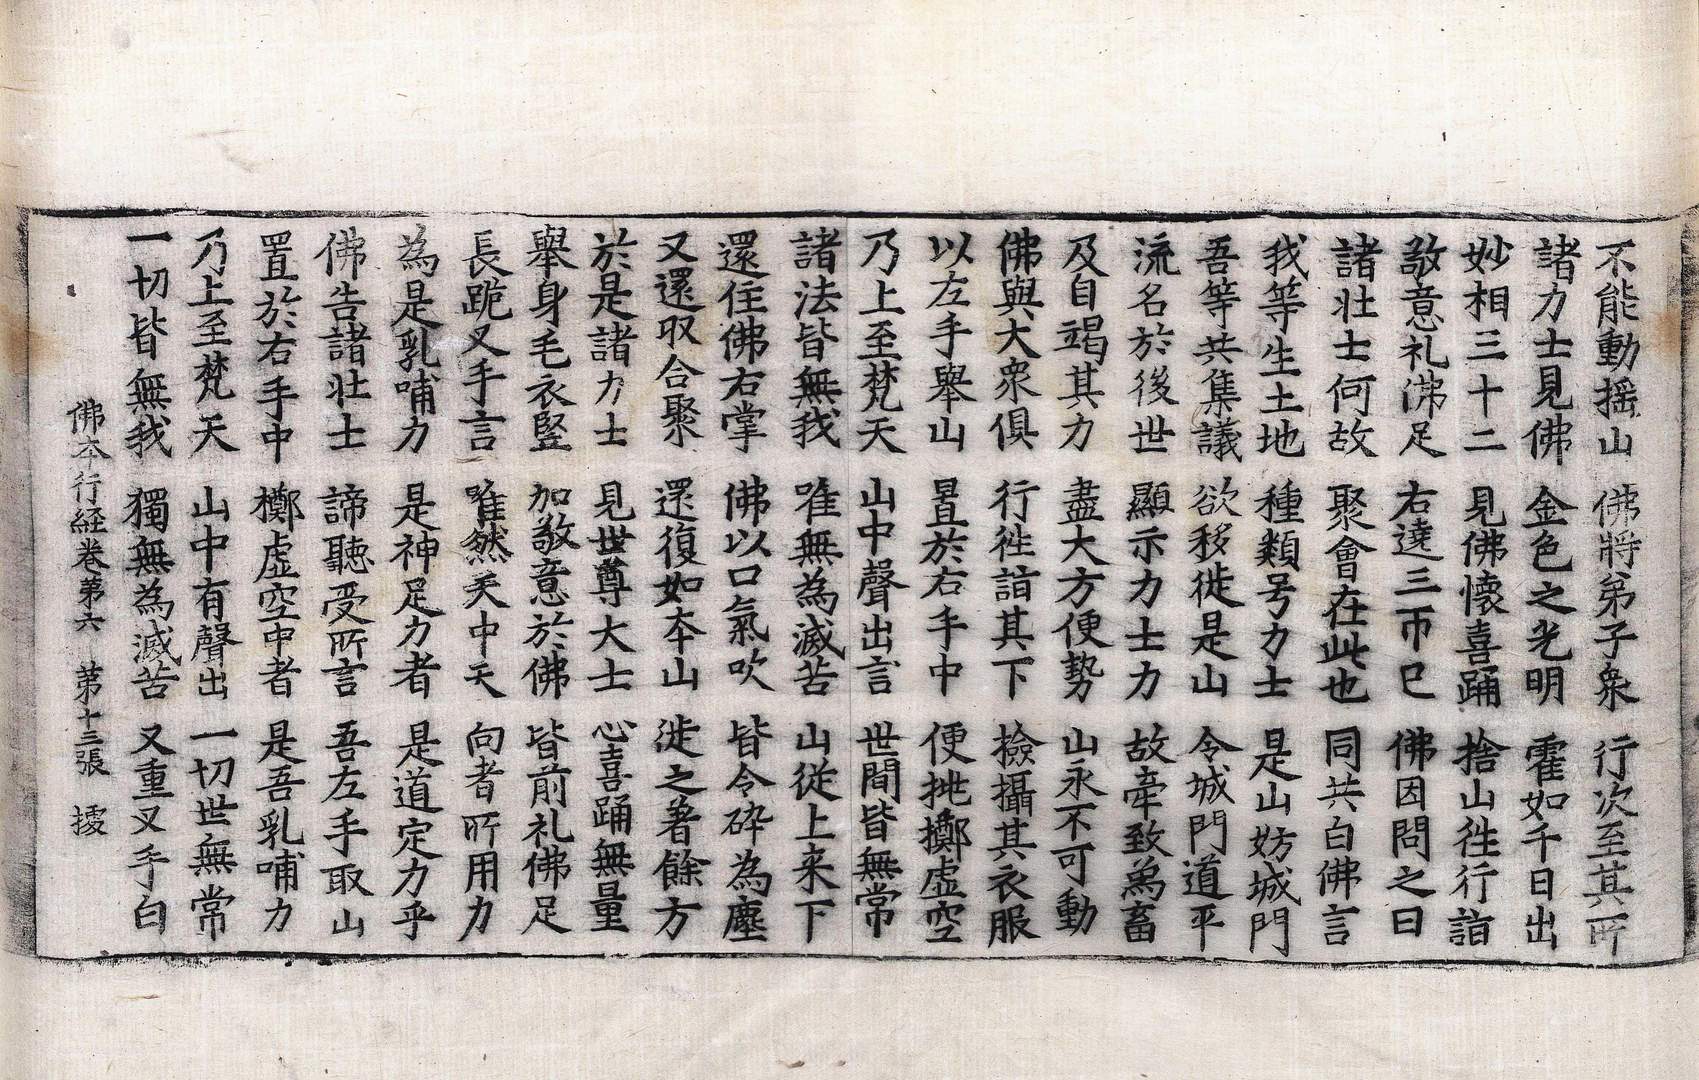 不能動揺山　佛將第子衆　行次至其所
諸力士見佛　金色之光明　霍如千日出
妙相三十二　見佛懷喜踊　捨山徃行詣
敬意礼沸足　右遶三帀已　佛因問之曰
諸壯士何故　聚會在此也　同共白佛言
我等生土地　種類号力士　是山妨城門
吾等共集議　欲移徙是山　令城門道平
流名於後世　顯示力士力　故牽致萬畜
及自竭其力　盡大方便勢　山永不可動
佛與大衆俱　行徃詣其下　撿攝其衣服
以左手舉山　置於右手中　便挑擲虛空
乃上至梵天　山中聲出言　世間皆無常
諸法皆無我　唯無為滅苦　山從上来下
還住佛右掌　佛以口氣吹　皆令碎為塵
又還取合聚　還復如本山　徙之著餘方
於是諸力士　見世尊大士　心喜踊無量
舉身毛衣竪　加敬意於佛　皆前礼佛足
長跪叉手言　唯然天中天　向者所用力
為是乳哺力　是神足力者　是道定力乎
佛告諸壯士　諦聽受所言　吾左手取山
置於右手中　擲虛空中者　是吾乳哺力
乃上至梵天　山中有聲出　一切世無常
一切皆無我　獨無為滅苦　又重叉手白
佛本行経卷第六　第十三張　㩀